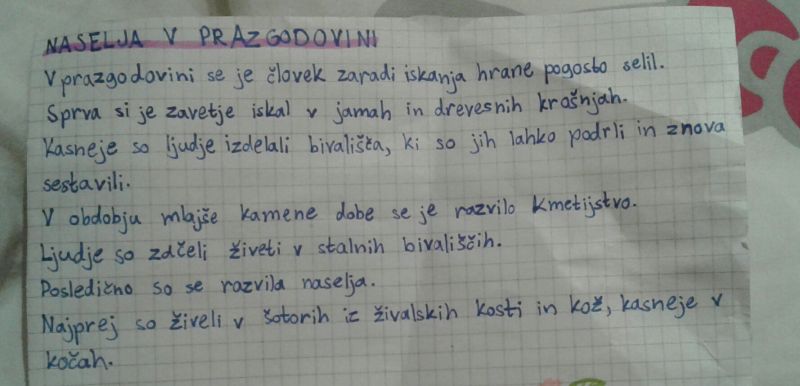 NASELJA V PRAZGODOVINI
V prazgodovini se je človek zaradi iskanja hrane pogosto selil.
Sprva si je zavetje iskal v jamah in drevesnih krošnjah.
Kasneje so ljudje izdelali bivališča, ki so jih lahko podrli in znova
sestavili.
V obdobju mlajše kamene dobe se je razvilo kmetijstvo.
Ljudje so začeli živeti v stalnih bivališčih.
Posledično so se razvila naselja.
Najprej so živeli v šotorih iz živalskih kosti in kož, kasneje v
kočah.